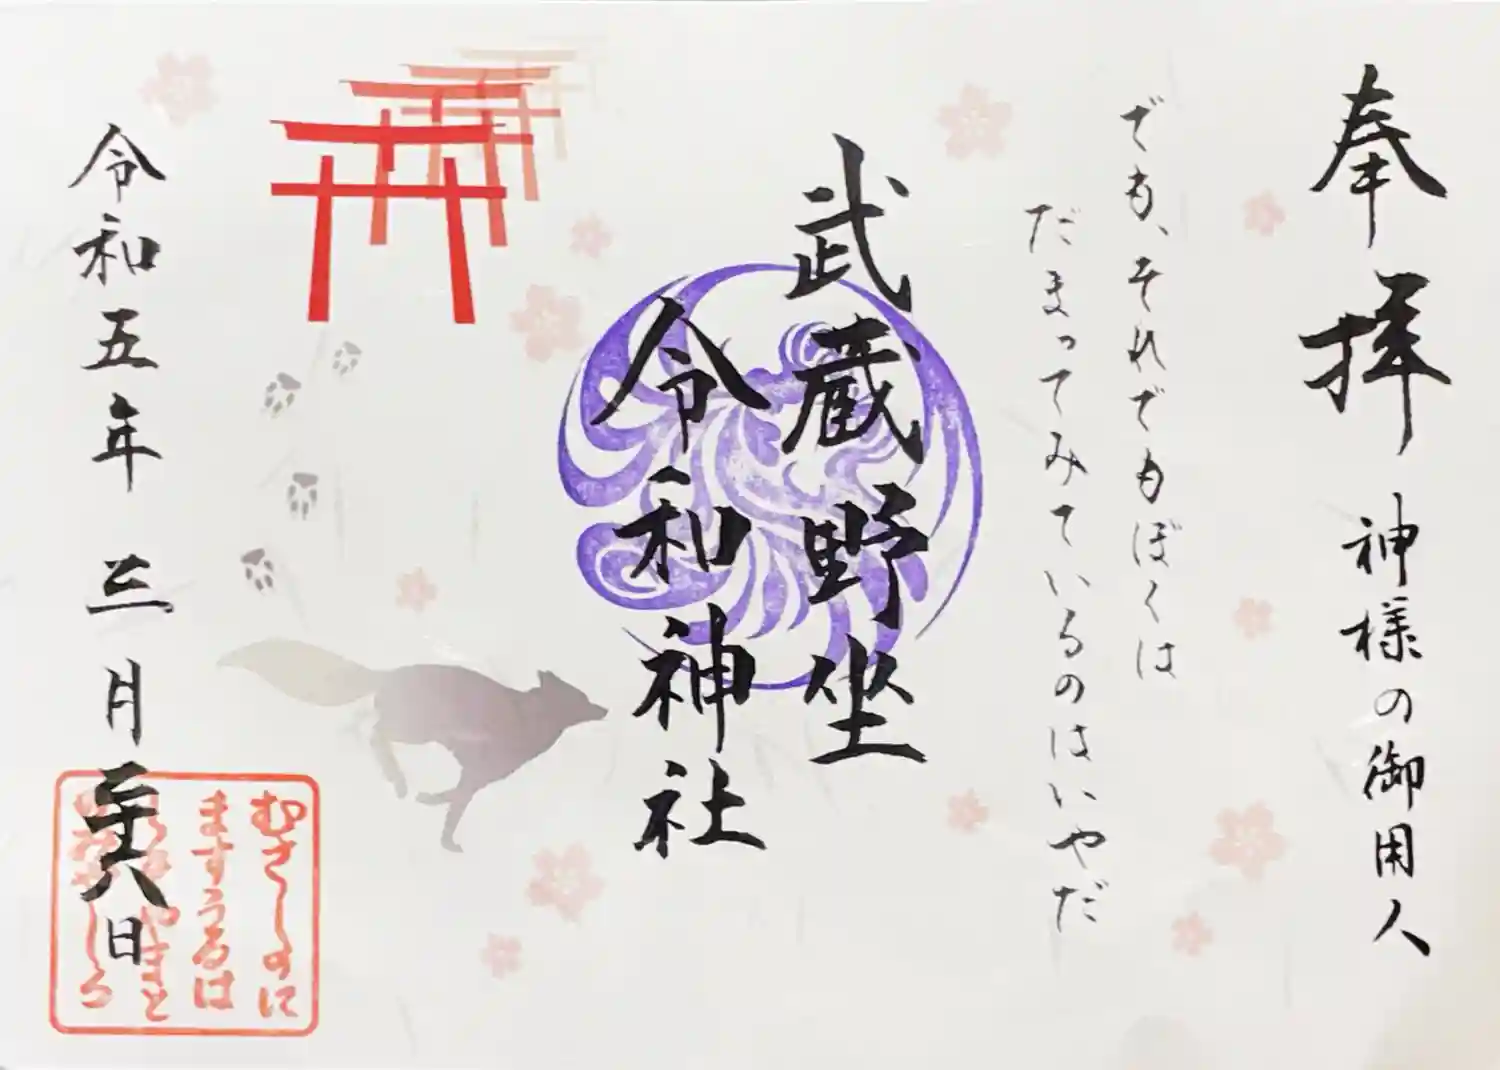 奉拝 神様の御用人
でも、それでもぼくは
だまってみているのはいやだ
武蔵野坐
令和神社
令和五年 三月 二十八日
むさしのに
ますうるは
やまと
みやしろ